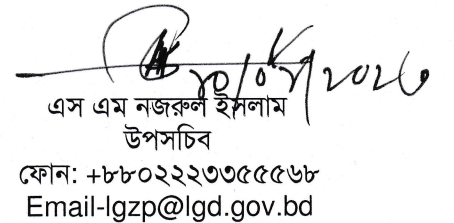 এস এম নজরুল ইসলাম
উপসচিব
ফোন: +৮৮০২২২৩৩৫৫৫৬৮
Email-lgzp@lgd.gov.bd